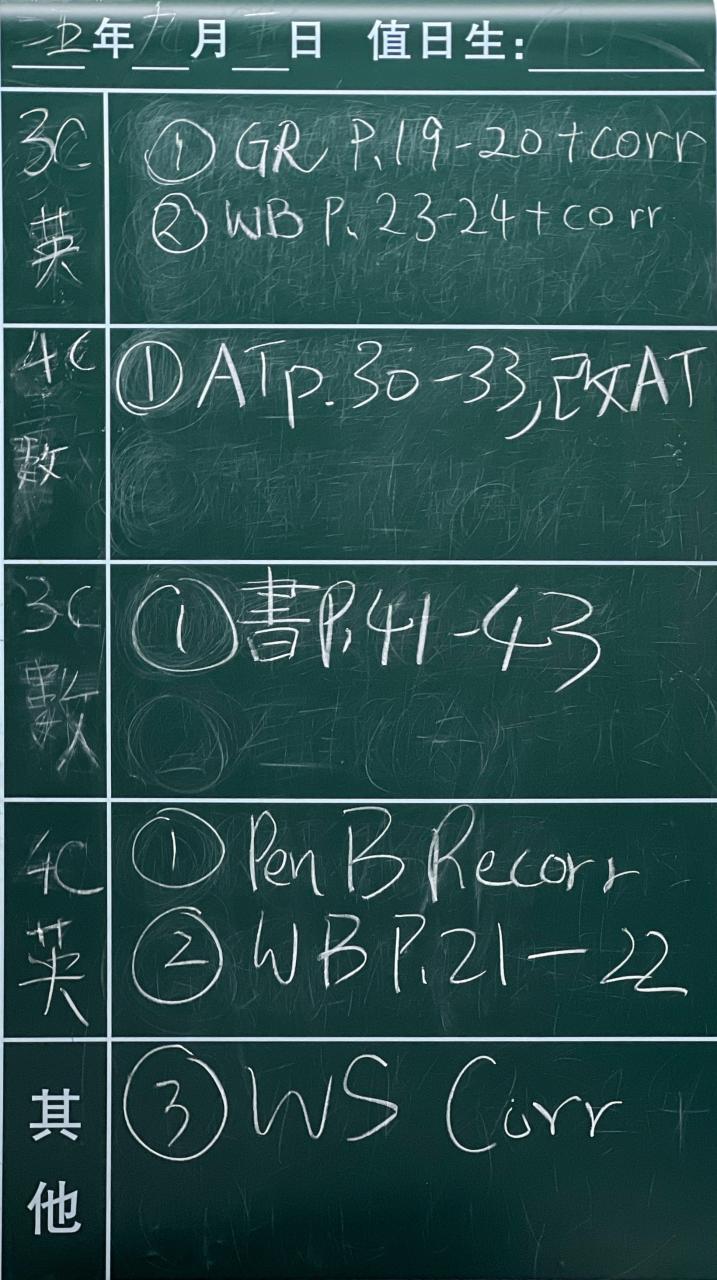 二五年九月三日 值日生:
3C
英
① GR P.19-20+corr
② WB P.23-24+corr
4C
数
① ATp.30-33,改AT
3C
數
① 書P.41-43
4C
英
① Pen B Recorr
② WB P.21-22
其他
③ WS Corr